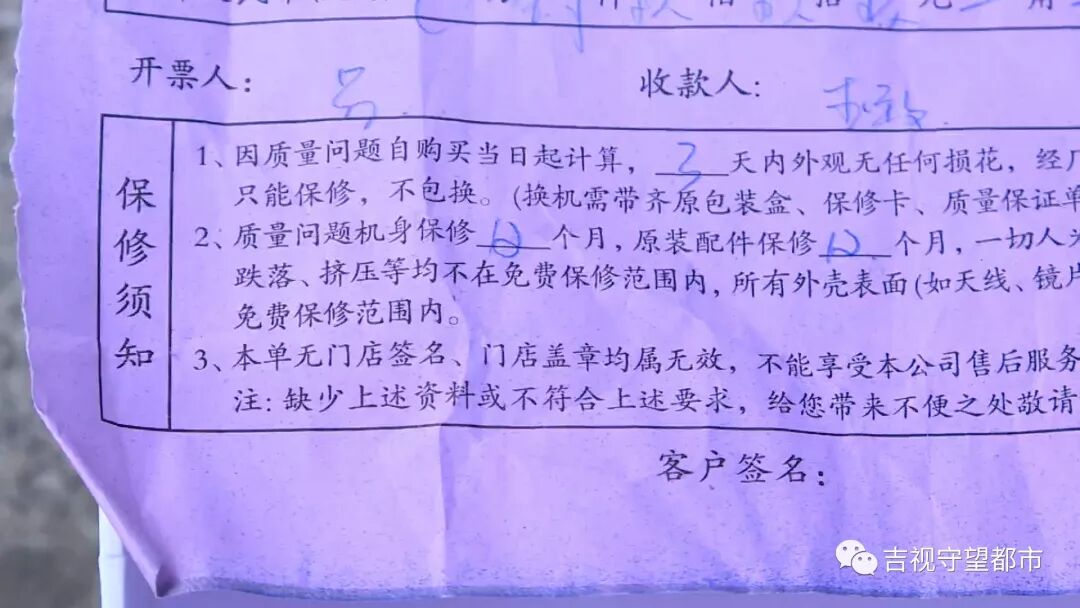 开票人：
收款人：
保修须知
1、因质量问题自购买当日起计算，3天内外观无任何损花，经厂
只能保修，不包换。(换机需带齐原包装盒、保修卡、质量保证单
2、质量问题机身保修12个月，原装配件保修12个月，一切人为
跌落、挤压等均不在免费保修范围内，所有外壳表面(如天线、镜片
免费保修范围内。
3、本单无门店签名、门店盖章均属无效，不能享受本公司售后服务
注：缺少上述资料或不符合上述要求，给您带来不便之处敬请
客户签名：
吉视守望都市